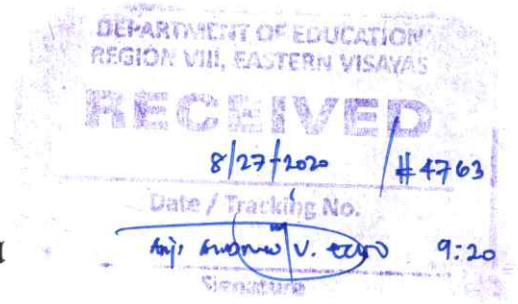 DEPARTMENT OF EDUCATION
REGION VIII, EASTERN VISAYAS
RECEIVED
8/27/2020 / #4763
Date / Tracking No.
V. 9:20
Signature